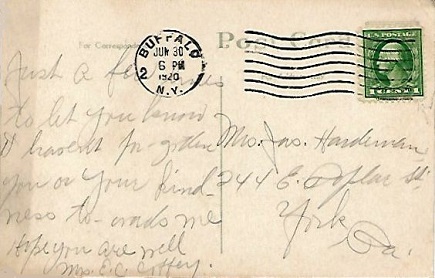 For Correspondence
Post Card
BUFFALO
JUN 30
6 PM
1920
N.Y.
2
U.S. POSTAGE
1 CENTS 1
Just a few lines
to let you know
I havent for-gotten
you or your kind-
ness to-wards me
Hope you are well
Mrs. E.C. Coffey.
Mrs. Jas. Hardeman
244 E. Poplar St.
York
Pa.